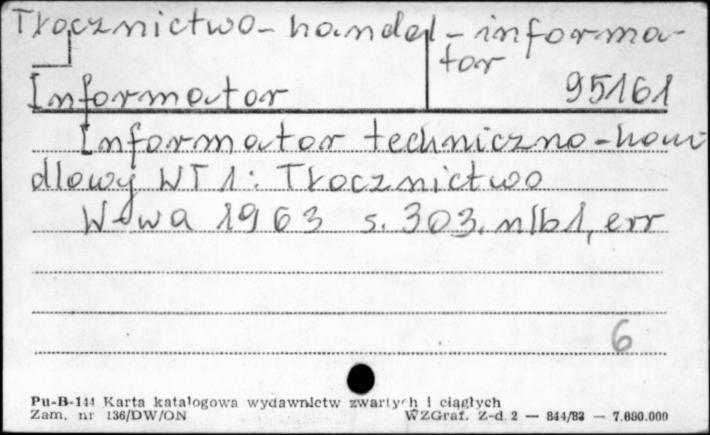 Tłocznictwo - handel - informa-
tor
Informator 95161
Informator techniczno-han
dlowy WT 1: Tłocznictwo
W-wa 1963 s. 303, nlb 1, err
6
Pu-B-144 Karta katalogowa wydawnictw zwartych i ciągłych
Zam. nr 136/DW/ON WZGraf. Z-d. 2 — 844/83 — 7.880.000